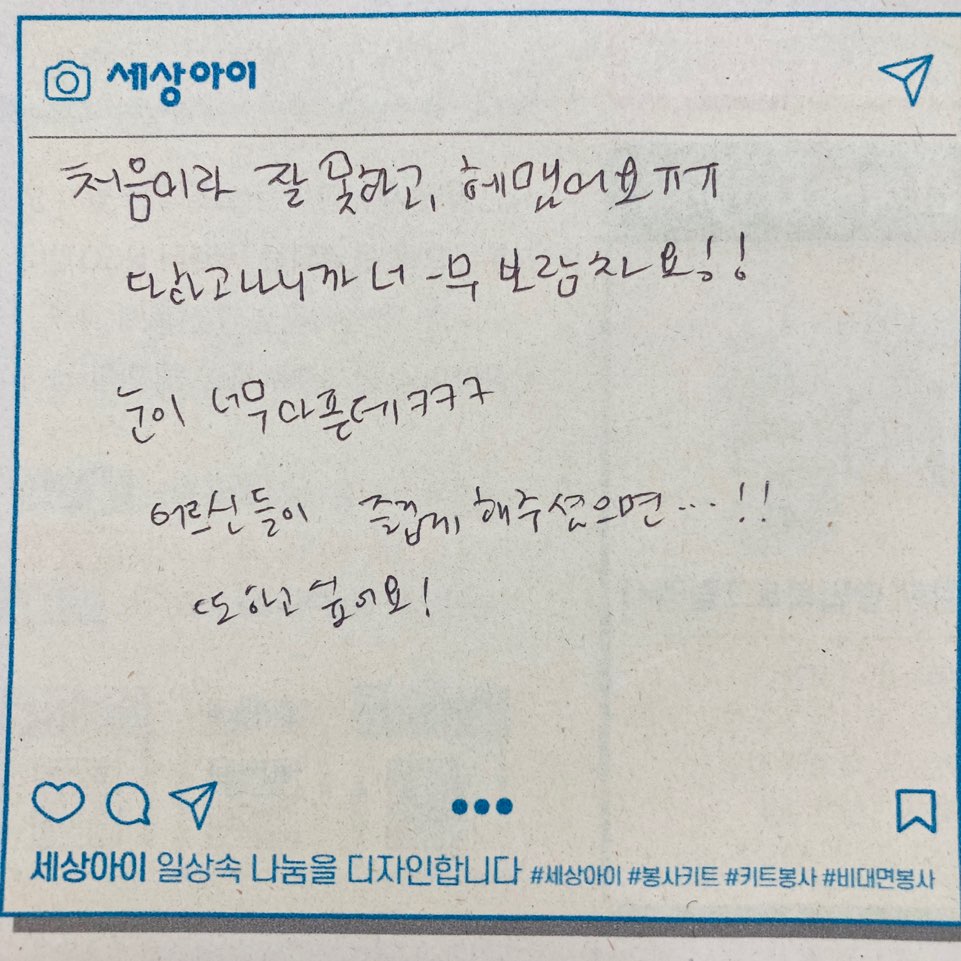 세상아이
처음이라 잘 못하고, 헤맸어요ㅠㅠ
다하고나니까 너-무 보람차요!!
눈이 너무 아픈데ㅋㅋㅋ
어르신들이 즐겁게 해주셨으면...!!
또 하고싶어요!
세상아이 일상속 나눔을 디자인합니다 #세상아이 #봉사키트 #키트봉사 #비대면봉사